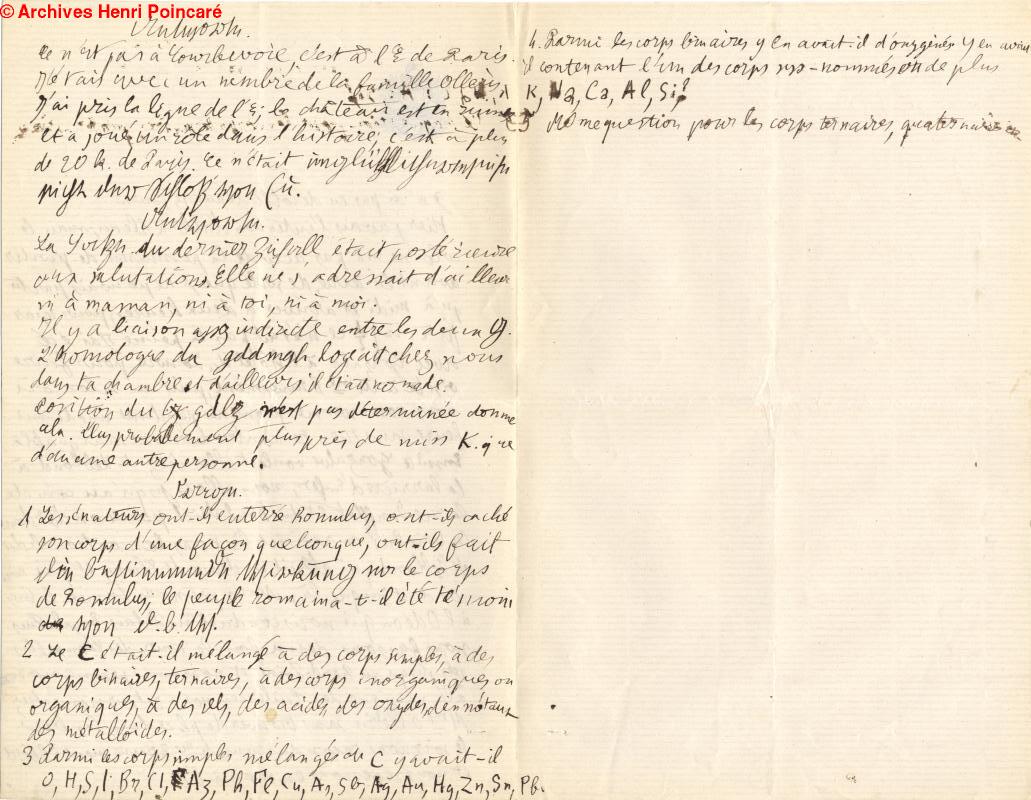 © Archives Henri Poincaré
Antwort.
Ce n'était pas à Courbevoie, c'est à l'E de Paris.
J'étais avec un membre de la famille Olleris
J'ai pris la ligne de l'E; le château est en ruine
et a joué un rôle dans l'histoire, c'est à plus
de 20 k. de Paris. Ce n'était
nicht das Schloß von Cü.
Antwort.
La du dernier Zufall était postérieure
aux salutations. Elle ne s'adressait d'ailleurs
ni à maman, ni à toi, ni à moi.
Il y a liaison assez indirecte entre les deux G.
L'homologue du gddmgh logeait chez nous
dans ta chambre et d'ailleurs il était nomade.
Position du gdlz n'est pas déterminée donne
ala. Plus probablement plus près de miss K. que
d'aucune autre personne.
1 Les sénateurs ont-ils enterré Romulus, ont-ils caché
son corps d'une façon quelconque, ont-ils fait
sur le corps
de Romulus, le peuple romain a-t-il été témoin
von d. b.
2 Le C était-il mélangé à des corps simples, à des
corps binaires, ternaires, à des corps inorganiques ou
organiques, à des sels, des acides des oxydes, des métaux
des métalloïdes.
3 Parmi les corps simples mélangés du C y avait-il
O, H, S, I, Br, Cl, Az, Ph, Fe, Cu, As, Sb, Ag, Au, Hg, Zn, Sn, Pb.
4. Parmi les corps binaires y en avait-il d'oxygénés y en avait
il contenant l'un des corps sus-nommés ou de plus
K, Na, Ca, Al, Si?
5 Même question pour les corps ternaires, quaternaires